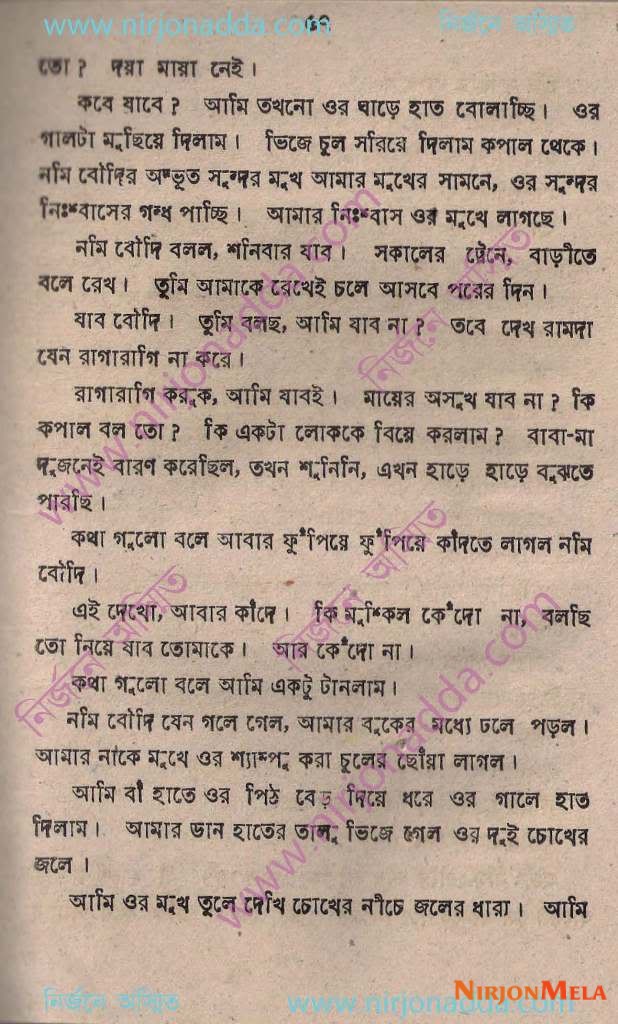 www.nirjonadda.com নির্জনে অস্মিত
তো? দয়া মায়া নেই।
কবে যাবে? আমি তখনো ওর ঘাড়ে হাত বোলাচ্ছি। ওর
গালটা মুছিয়ে দিলাম। ভিজে চুল সরিয়ে দিলাম কপাল থেকে।
নমি বৌদির অদ্ভূত সুন্দর মুখ আমার মুখের সামনে, ওর সুন্দর
নিঃশ্বাসের গন্ধ পাচ্ছি। আমার নিঃশ্বাস ওর মুখে লাগছে।
নমি বৌদি বলল, শনিবার যাব। সকালের ট্রেনে, বাড়ীতে
বলে রেখ। তুমি আমাকে রেখেই চলে আসবে পরের দিন।
যাব বৌদি। তুমি বলছ, আমি যাব না? তবে দেখ রামদা
যেন রাগারাগি না করে।
রাগারাগি করুক, আমি যাবই। মায়ের অসুখ যাব না? কি
কপাল বল তো? কি একটা লোককে বিয়ে করলাম? বাবা-মা
দুজনেই বারণ করেছিল, তখন শুনিনি, এখন হাড়ে হাড়ে বুঝতে
পারছি।
কথা গুলো বলে আবার ফুঁপিয়ে ফুঁপিয়ে কাঁদতে লাগল নমি
বৌদি।
এই দেখো, আবার কাঁদে। কি মুশকিল কেঁদো না, বলছি
তো নিয়ে যাব তোমাকে। আর কেঁদো না।
কথা গুলো বলে আমি একটু টানলাম।
নমি বৌদি যেন গলে গেল, আমার বুকের মধ্যে ঢলে পড়ল।
আমার নাকে মুখে ওর শ্যাম্পু করা চুলের ছোঁয়া লাগল।
আমি বাঁ হাতে ওর পিঠ বেড় দিয়ে ধরে ওর গালে হাত
দিলাম। আমার ডান হাতের তালু ভিজে গেল ওর দুই চোখের
জলে।
আমি ওর মুখ তুলে দেখি চোখের নীচে জলের ধারা। আমি
নির্জনে অস্মিত www.nirjonadda.com
NIRJONMELA